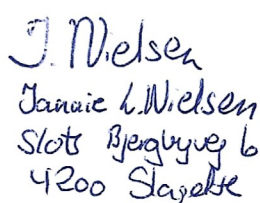 J. Nielsen
Jannie L. Nielsen
Slots Bjergbyvej 6
4200 Slagelse